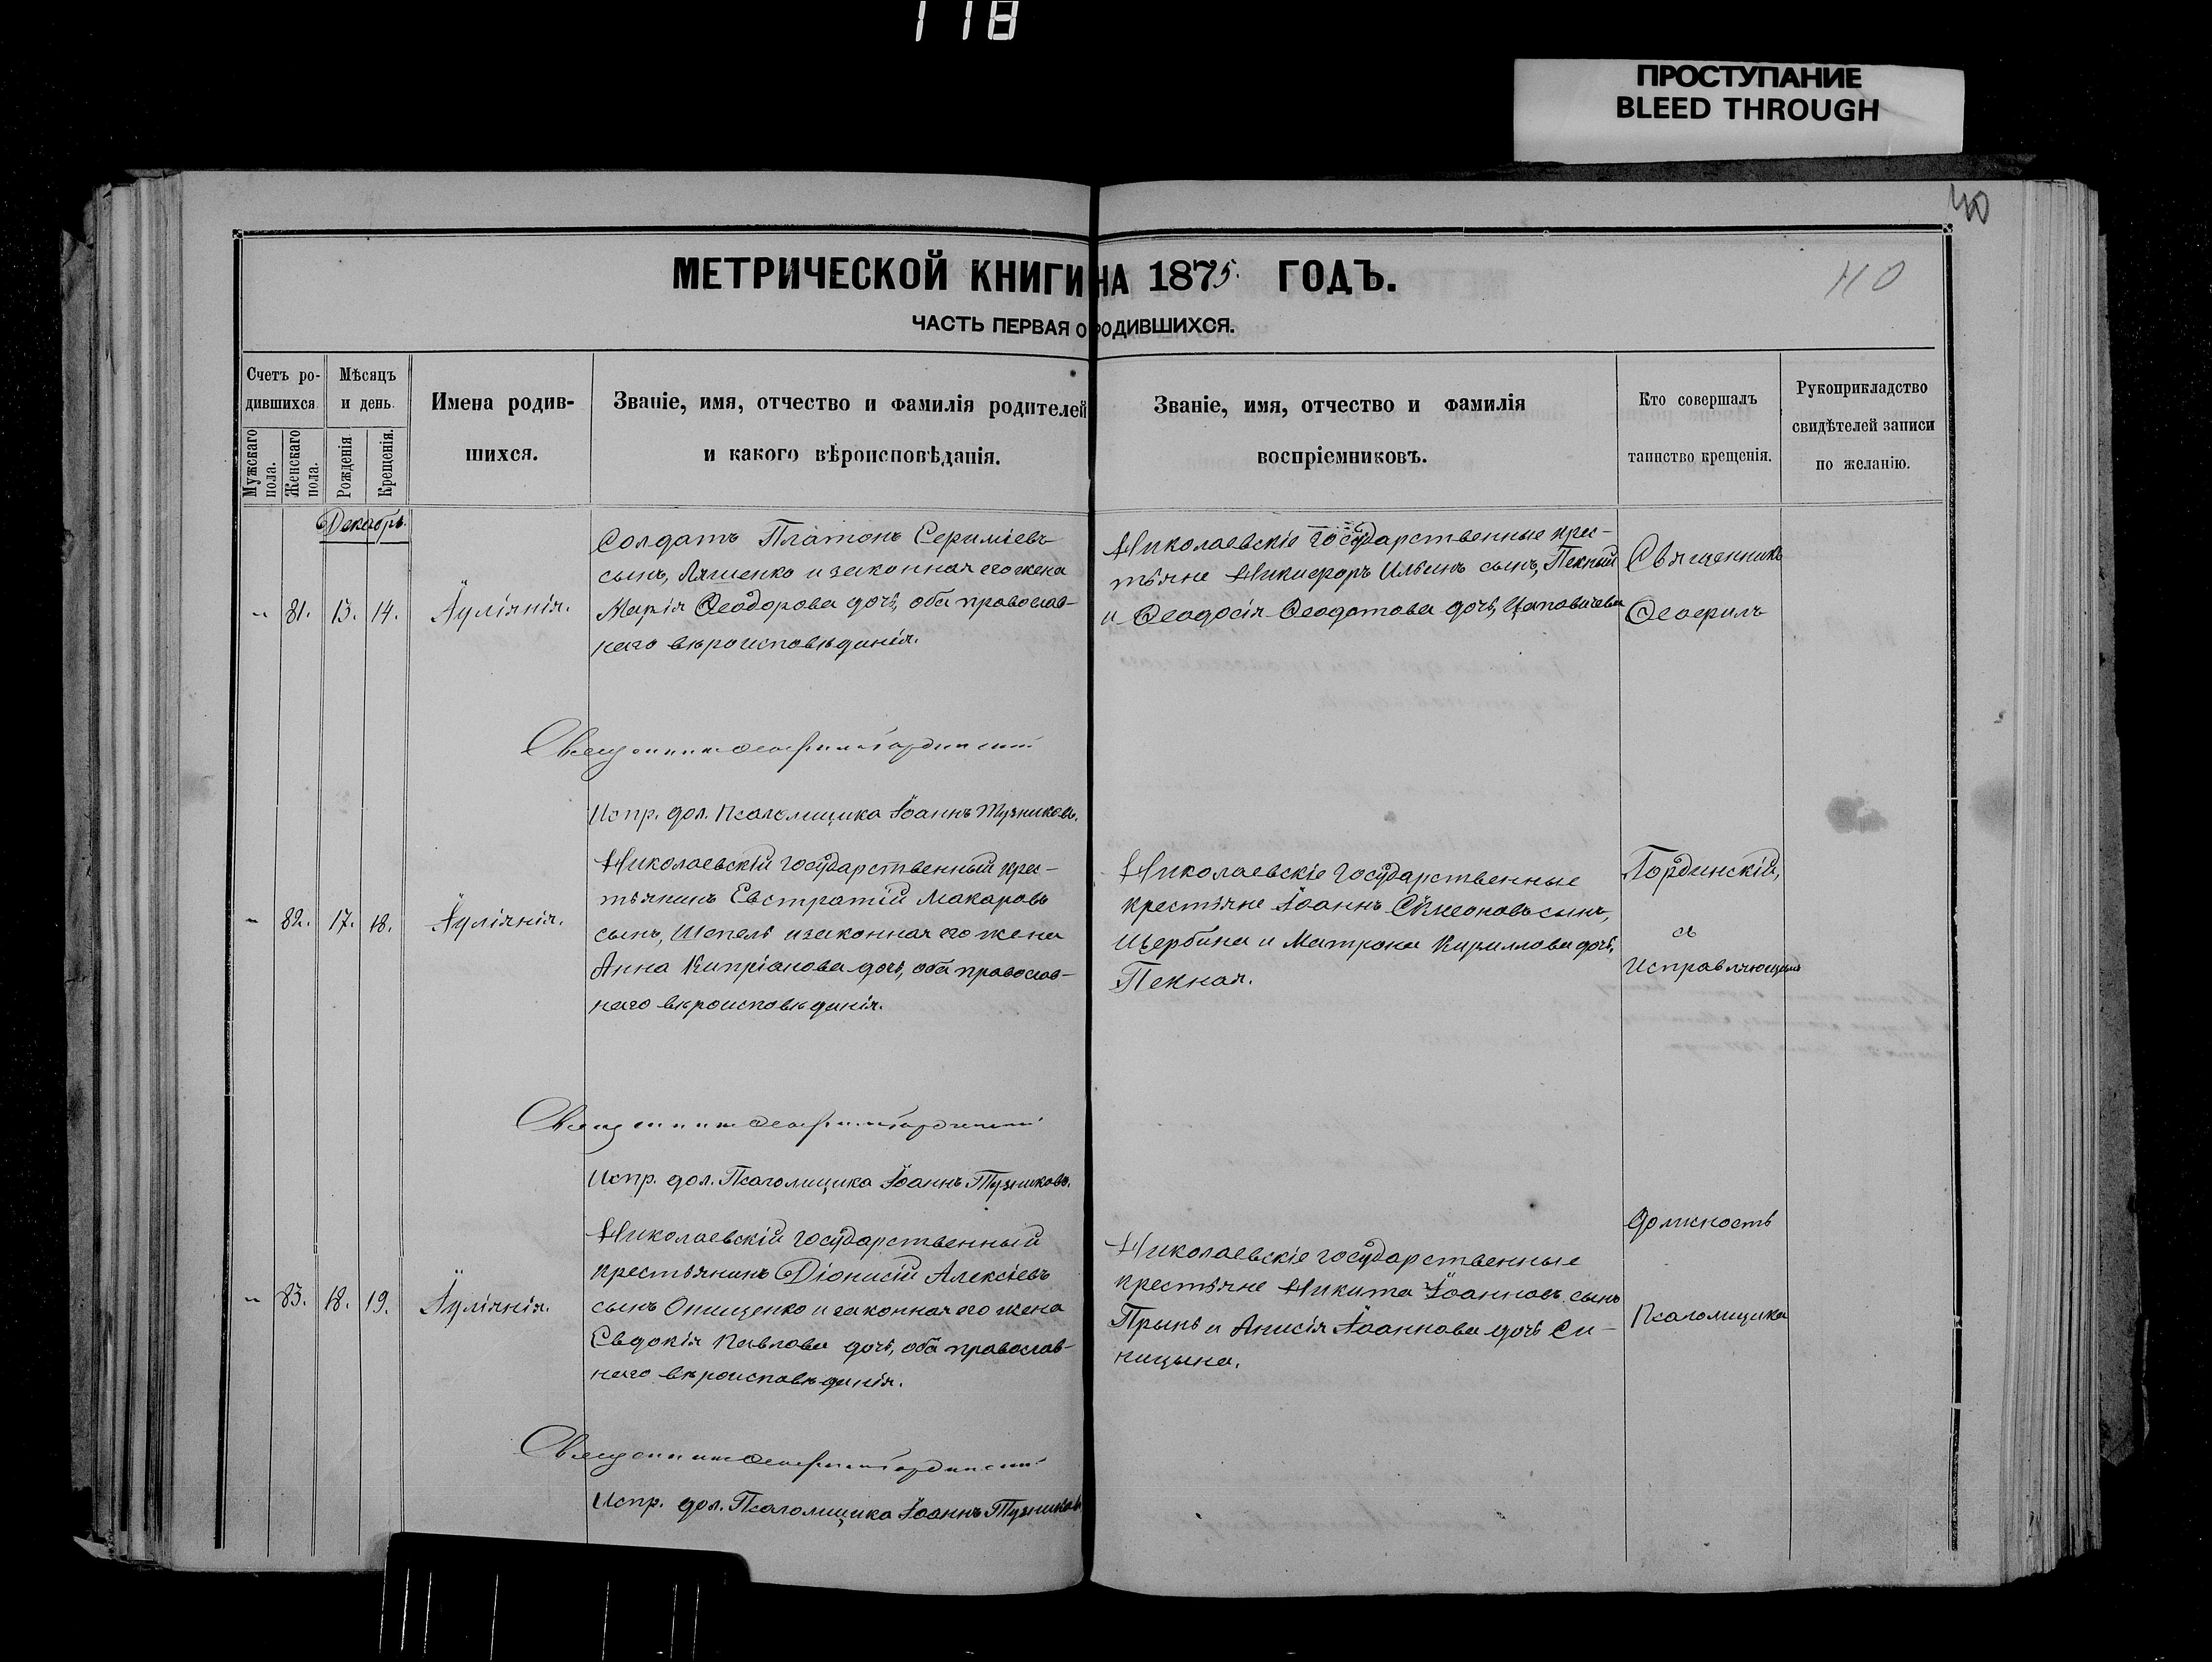 118
ПРОСТУПАНИЕ
BLEED THROUGH
40
40
МЕТРИЧЕСКОЙ КНИГИ НА 1875 ГОДЪ.
ЧАСТЬ ПЕРВАЯ О РОДИВШИХСЯ.
Счетъ родившихся.
Мужскаго пола.
Женскаго пола.
Мѣсяцъ и день.
Рожденія
Крещенія.
Имена родив-
шихся.
Званіе, имя, отчество и фамилія родителей
и какого вѣроисповѣданія.
Званіе, имя, отчество и фамилія
воспріемниковъ.
Кто совершалъ
таинство крещенія.
Рукоприкладство
свидѣтелей записи
по желанію.
Декабрь.
" 81. 13. 14. Іуліянія.
Солдатъ Платонъ Сериміевъ
сынъ, Ляшенко и законная его жена
Марія Ѳеодорова дочь, оба православ-
наго вѣроисповѣданія.
Николаевскіе государственные крес-
тьяне Никифоръ Ильинъ сынъ, Пекный
и Ѳеодосія Ѳеодотова дочь,
Священникъ
Ѳеофилъ
Священникъ Ѳеофилъ Гординскій
Испр. дол. Псаломщика Іоаннъ Тузниковъ.
" 82. 17. 18. Іуліянія.
Николаевскій государственный крес-
тьянинъ Евстратій Макаровъ
сынъ, Шепель и законная его жена
Анна Кипріанова дочь, оба православ-
наго вѣроисповѣданія.
Николаевскіе государственные
крестьяне Іоаннъ Сѵмеоновъ сынъ,
Щербина и Матрона Кириллова дочь,
Пекная.
Гординскій,
съ
Исправляющимъ
Священникъ Ѳеофилъ Гординскій
Испр. дол. Псаломщика Іоаннъ Тузниковъ.
" 83. 18. 19. Іуліянія.
Николаевскій государственный
крестьянинъ Діонисій Алексіевъ
сынъ Онищенко и законная его жена
Евдокія Павлова дочь, оба православ-
наго вѣроисповѣданія.
Николаевскіе государственные
крестьяне Никита Іоанновъ сынъ
Прынь и Анисія Іоаннова дочь Си-
ницына.
должность
Псаломщика
Священникъ Ѳеофилъ Гординскій
Испр. дол. Псаломщика Іоаннъ Тузниковъ